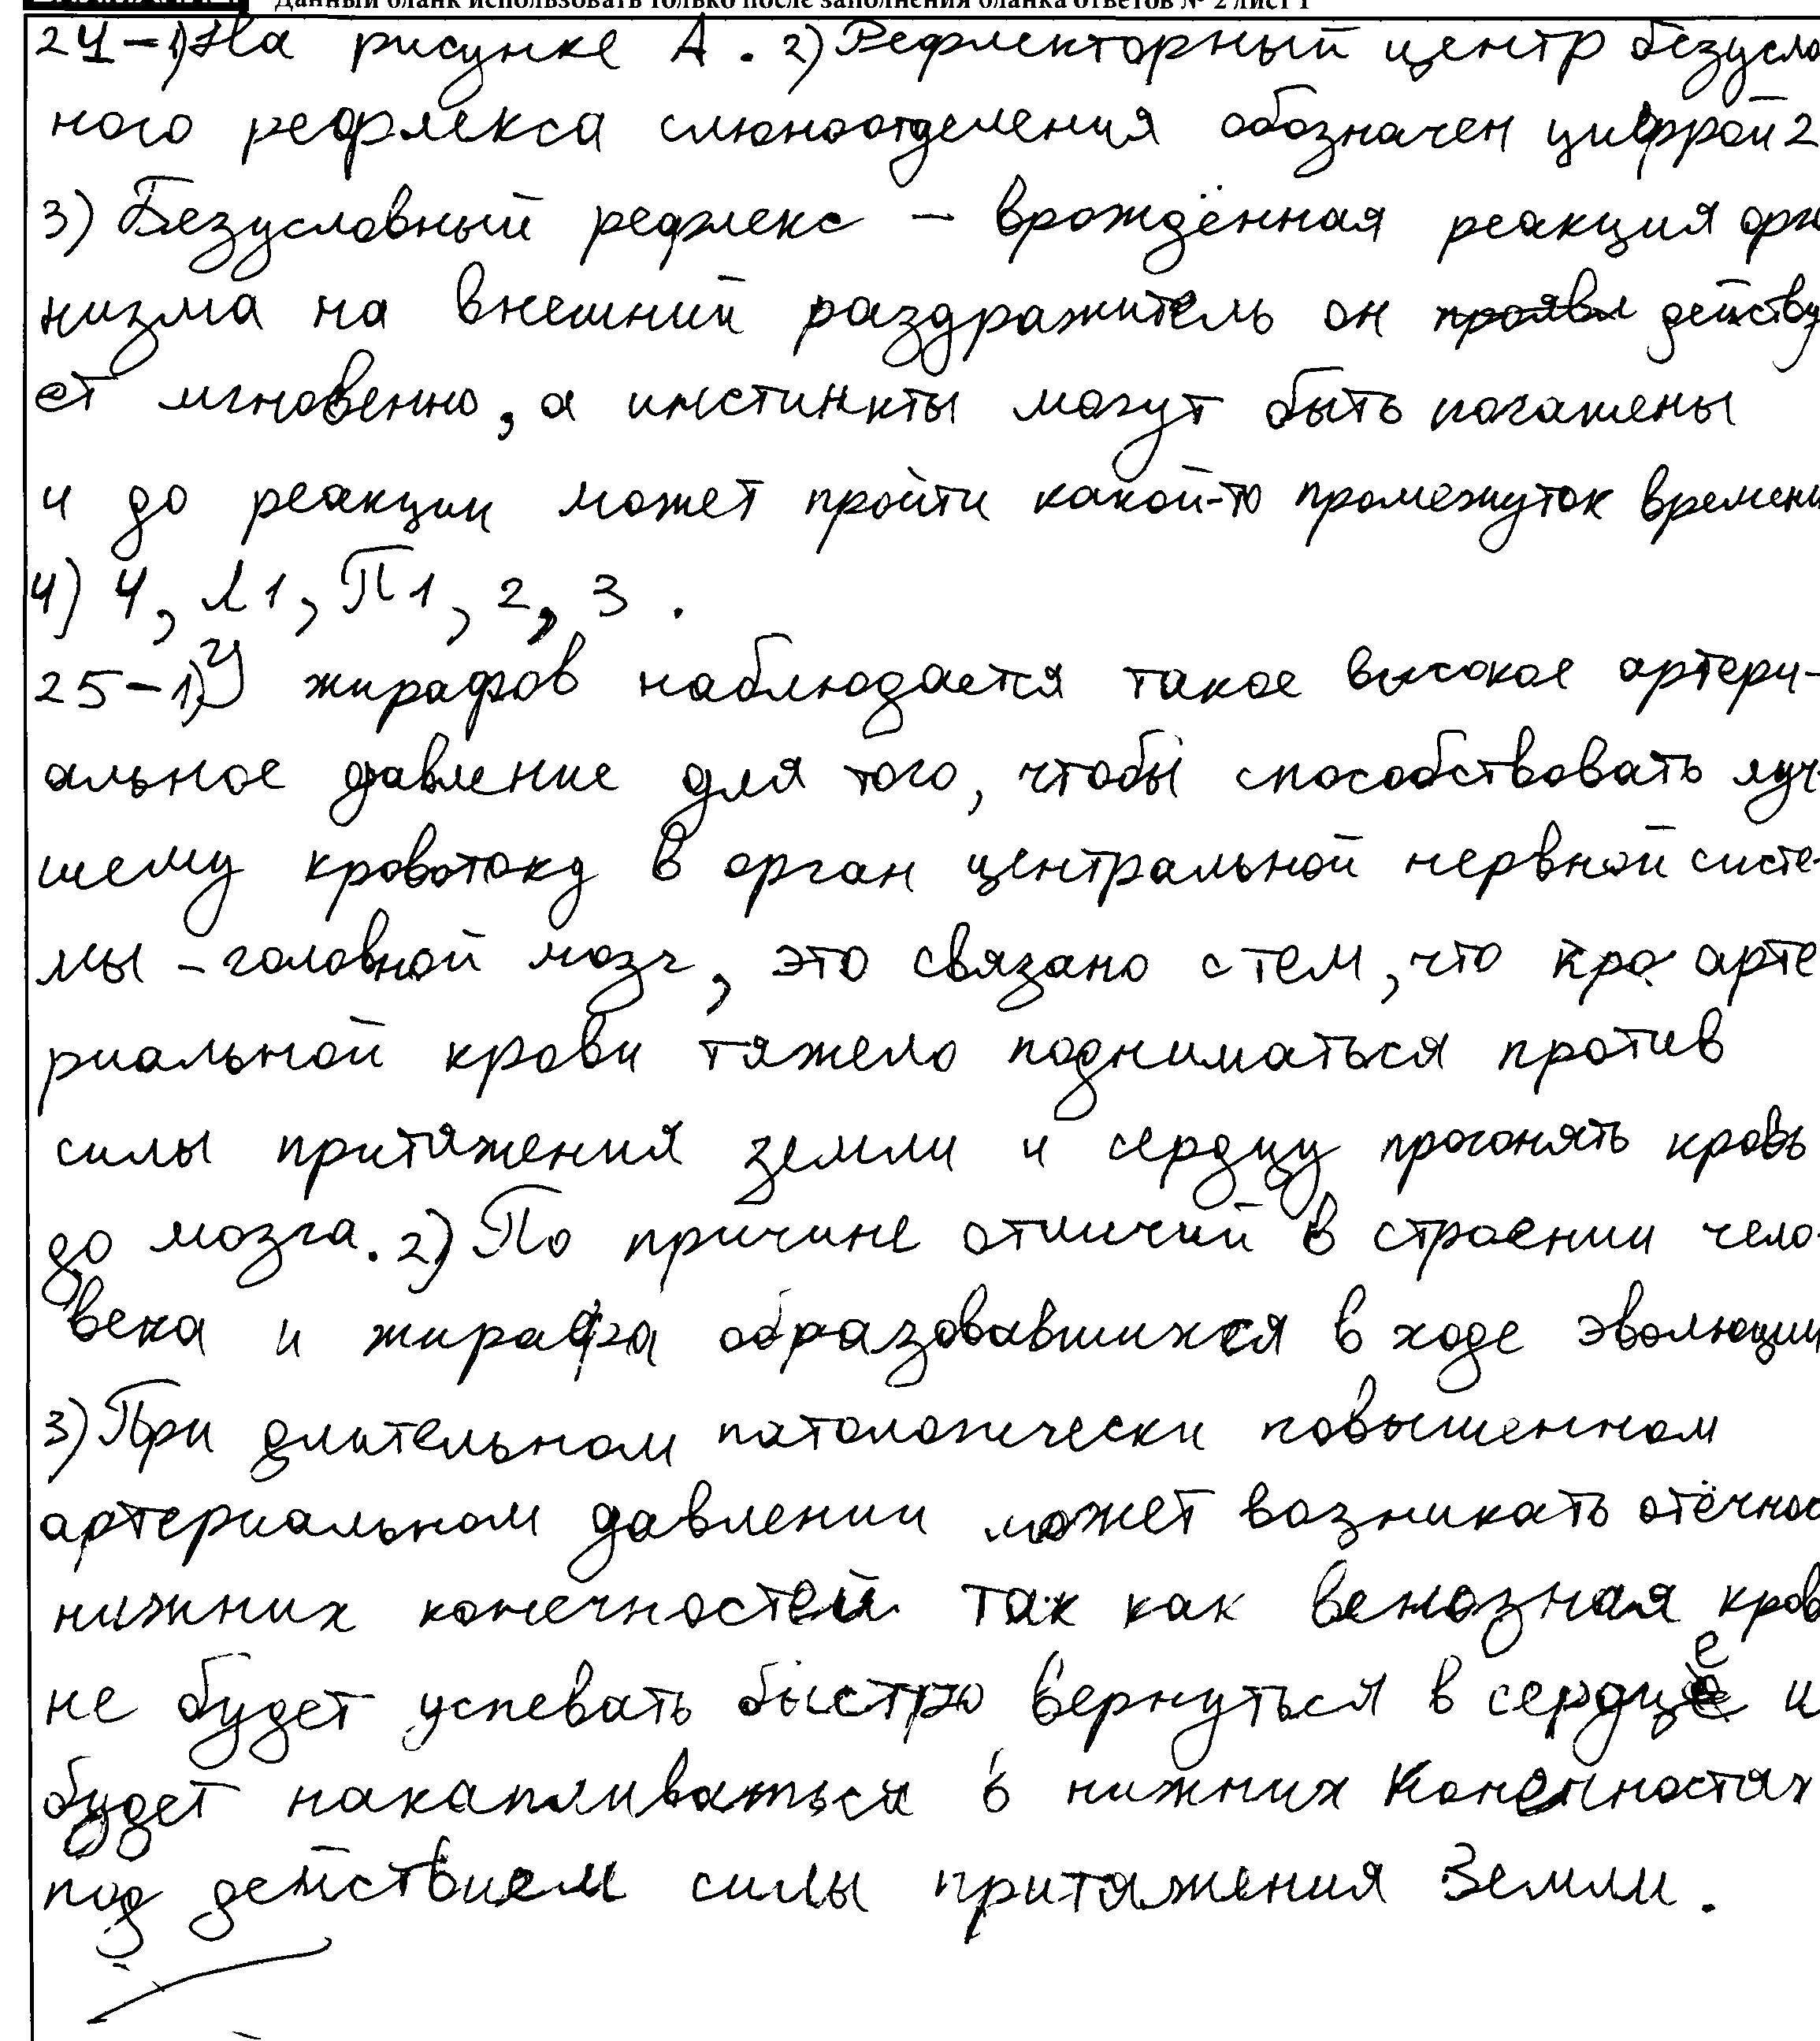 Данный бланк использовать только после заполнения бланка ответов № 2 лист 1
24-1)На рисунке А. 2) Рефлекторный центр безусло
ного рефлекса слюноотделения обозначен цифрой 2
3) Безусловный рефлекс - врождённая реакция орга
низма на внешний раздражитель он проявл действу
ет мгновенно, а инстинкты могут быть погашены
и до реакции может пройти какой-то промежуток времени
4) 4, Л1, П1, 2, 3.
25-1)У жирафов наблюдается такое высокое артери-
альное давление для того, чтобы способствовать луч-
шему кровотоку в орган центральной нервной систе-
мы - головной мозг, это связано с тем, что кро арте
риальной крови тяжело подниматься против
силы притяжения земли и сердцу прогонять кровь
до мозга. 2) По причине отличий в строении чело-
века и жирафа образовавшихся в ходе эволюции
3) При длительном патологически повышенном
артериальном давлении может возникать отёчнос
нижних конечностей так как венозная кров
не будет успевать быстро вернуться в сердце и
будет накапливаться в нижних конечностях
под действием силы притяжения Земли.